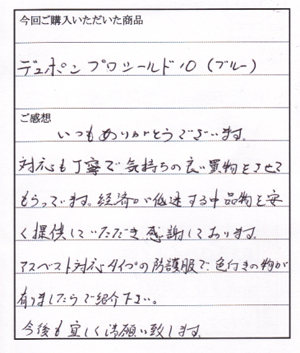 今回ご購入いただいた商品
デュポン プロシールド10(ブルー)
ご感想
いつもありがとうございます。
対応も丁寧で気持ちの良い買物をさせて
もらっています。経済が低迷する中品物を安
く提供していただき感謝しております。
アスベスト対応タイプの防護服で、色付きの物が
有りましたらご紹介下さい。
今後も宜しくお願い致します。